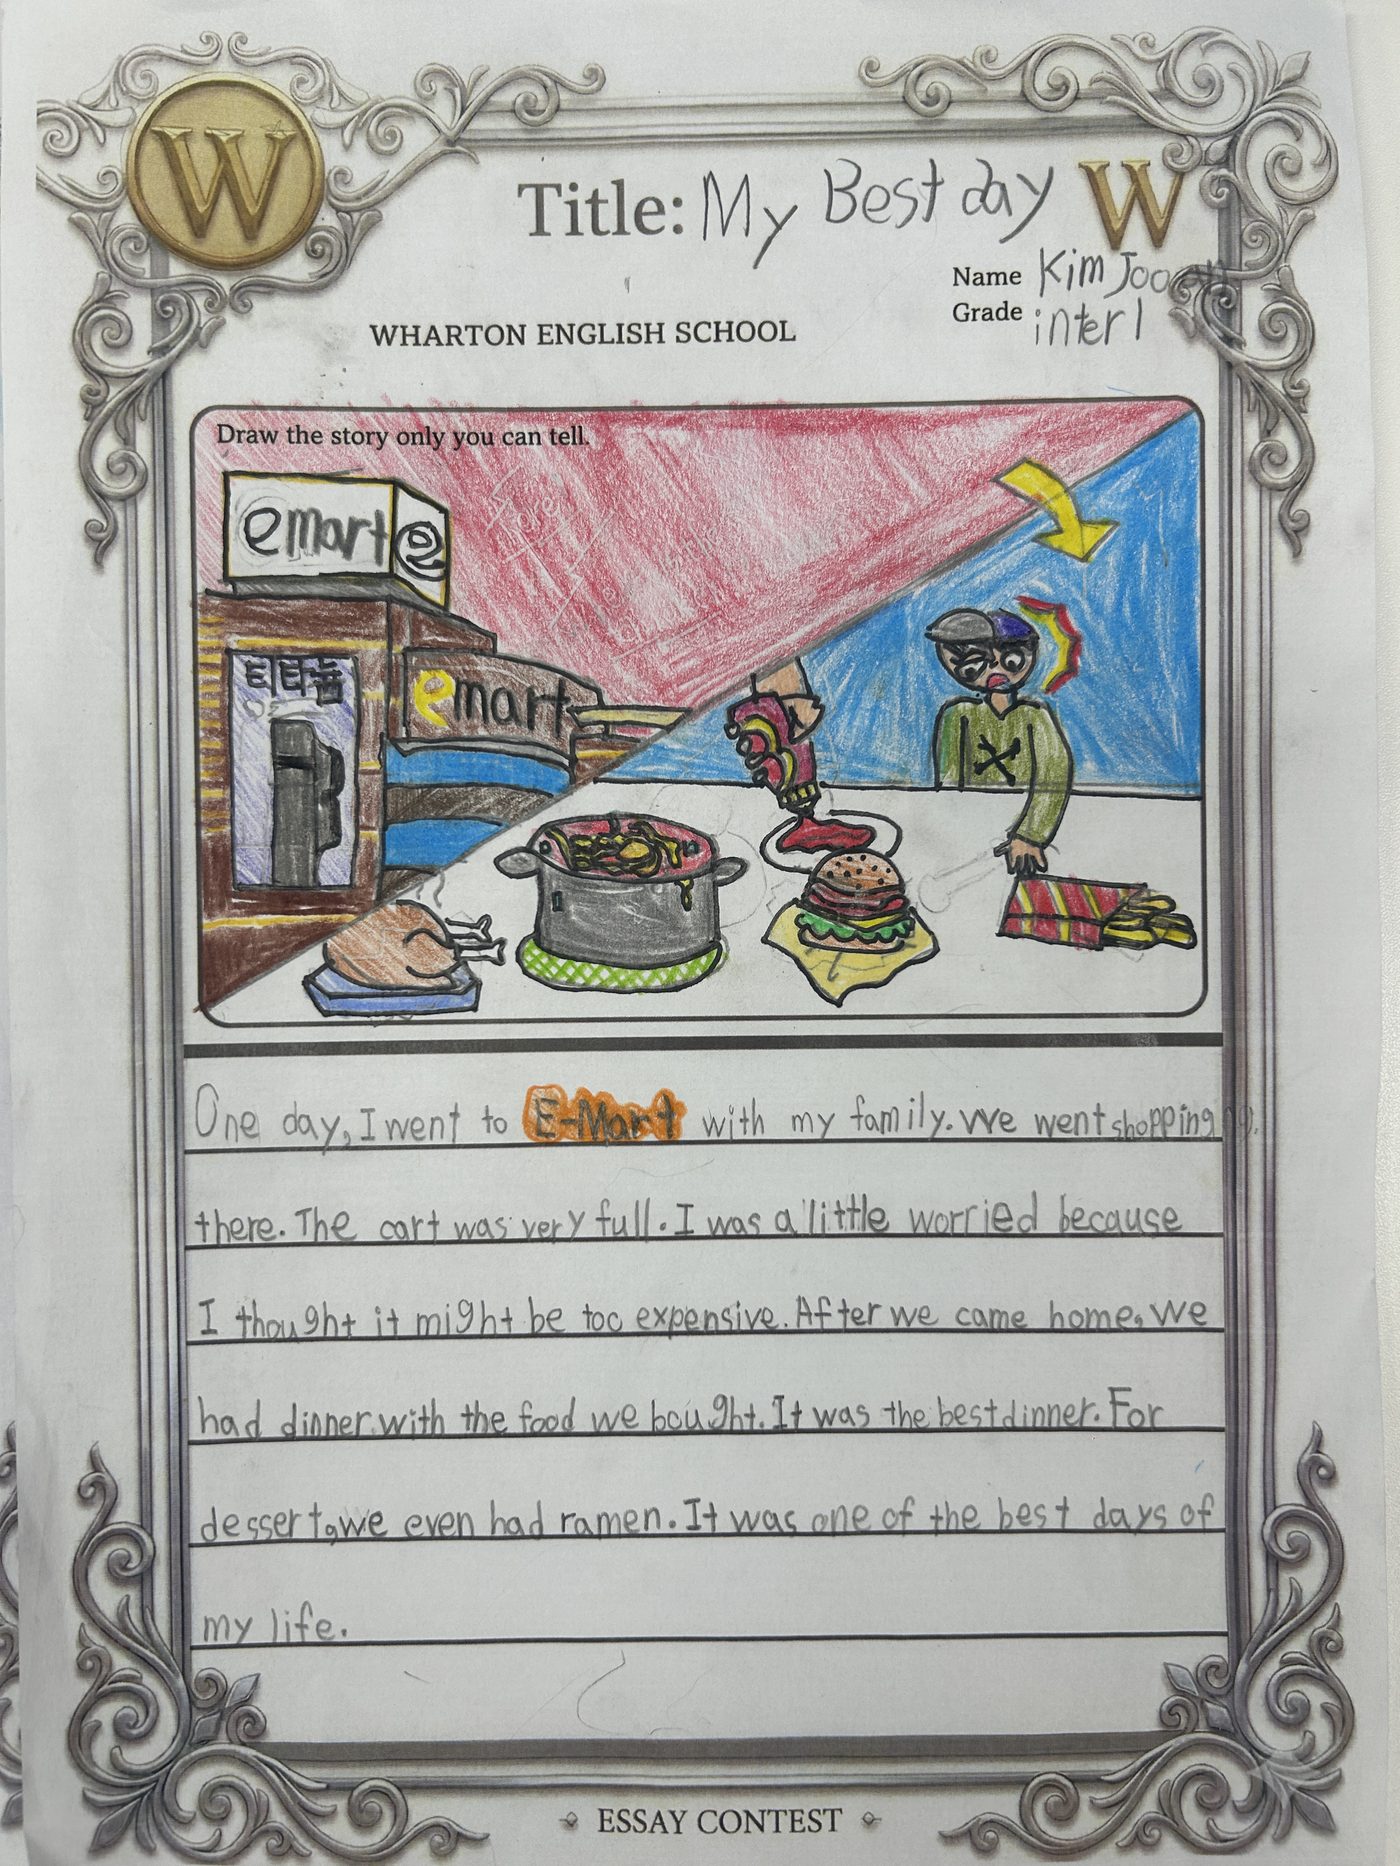 W
Title: My Best day W
Name Kim Jooan
Grade inter 1
WHARTON ENGLISH SCHOOL
Draw the story only you can tell.
emart e
emart
One day, I went to E-Mart with my family. We went shopping
there. The cart was very full. I was a little worried because
I thought it might be too expensive. After we came home, we
had dinner with the food we bought. It was the best dinner. For
dessert, we even had ramen. It was one of the best days of
my life.
ESSAY CONTEST